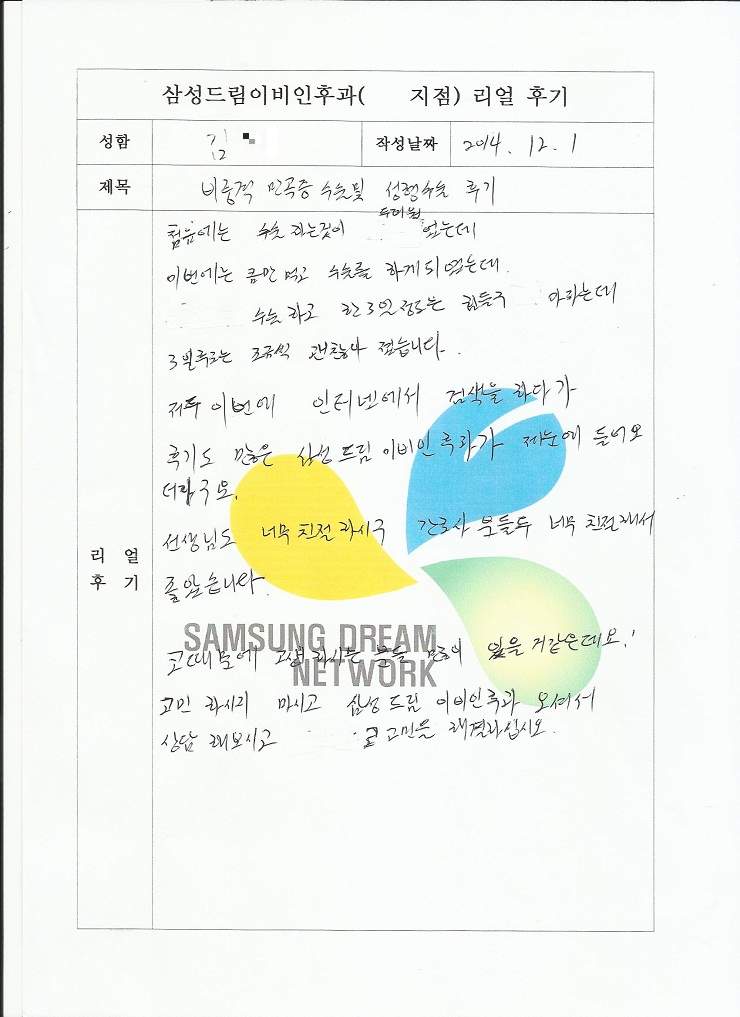 삼성드림이비인후과( 지점) 리얼 후기
성함 김
작성날짜 2014. 12. 1
제목 비중격 만곡증 수술및 성형수술 후기
리 얼
후 기
첨음에는 수술 하는것이 두려웠 었는데
이번에는 큼만 먹고 수술를 하게 되었는데.
수술 하고 한 3일정도는 힘들구 아파는데
3일후로는 조금씩 괜찮아 졌습니다.
저두 이번에 인터넷에서 검색을 하다가
후기도 많은 삼성드림이비인후과가 제눈에 들어오
더라구요.
선생님도 너무 친절하시구 간호사 분들두 너무 친절해서
좋았습니다.
SAMSUNG DREAM
NETWORK
코때문에 고생하시는 분들 많이 있을 거같은데요!
고민 하시지 마시고 삼성드림 이비인후과 오셔서
상담 해보시고 코 고민을 해결하십시오.